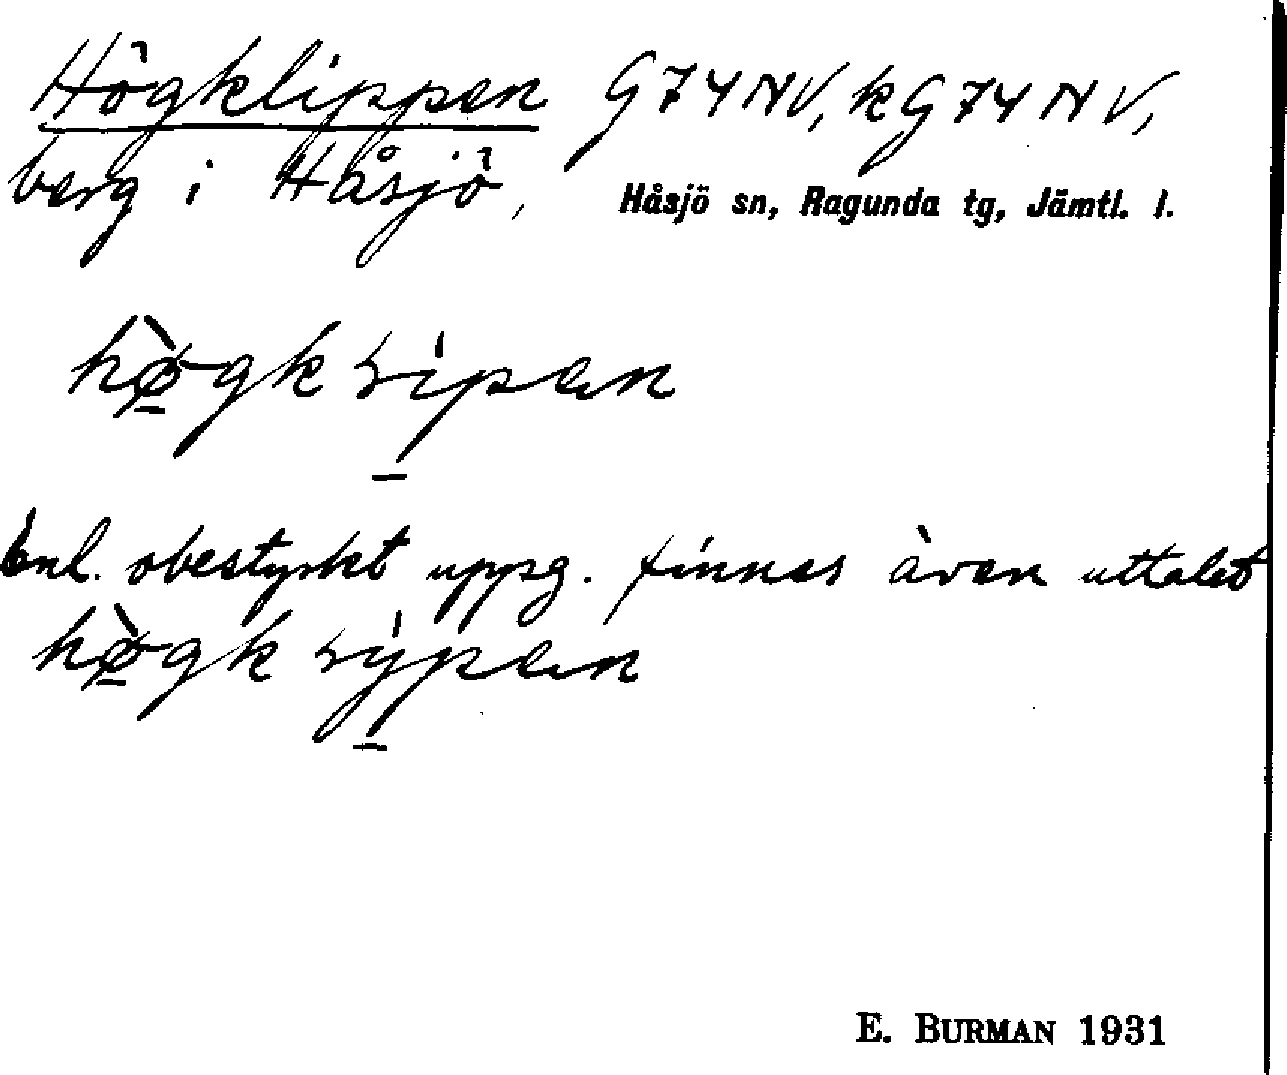 Högklippen G74NV, kG74NV,
berg i Håsjö, Håsjö sn, Ragunda tg, Jämtl. l.
Enl. obestyrkt uppg. finnes även uttalet
E. BURMAN 1931